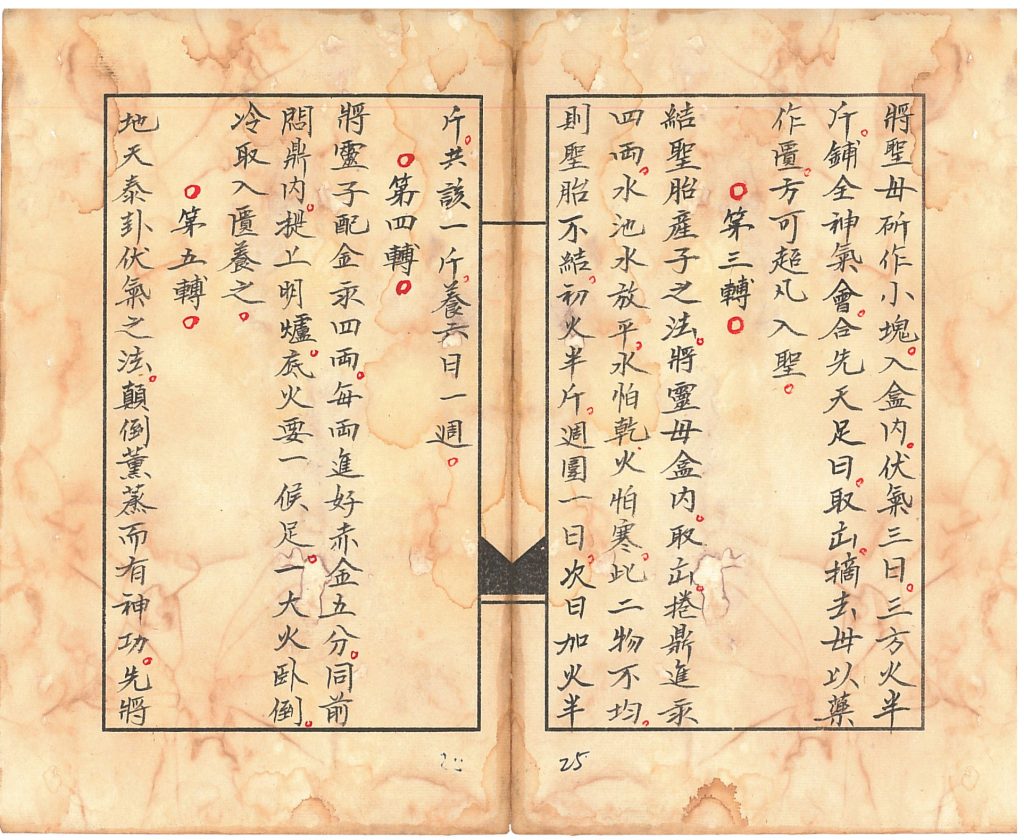 將聖母斫作小塊。入盒内。伏氣三日。三方火半
斤。鋪全神氣。會合先天足日。取出摘去母以藥
作匱。方可超凡入聖。
○第三轉○
結聖胎產子之法。將靈母盒内。取出。捲鼎進汞
四両。水池水放平。水怕乾。火怕寒。此二物不均。
則聖胎不結。初火半斤。週圍一日。次日加火半
25
斤。共該一斤。養六日一週。
○第四轉○
將靈子配金汞四両。每両進好赤金五分。同前
悶鼎内。提上明爐。底火要一候足。一大火卧倒。
冷取入匱養之。
○第五轉○
地天泰卦伏氣之法。顛倒薰蒸而有神功。先將